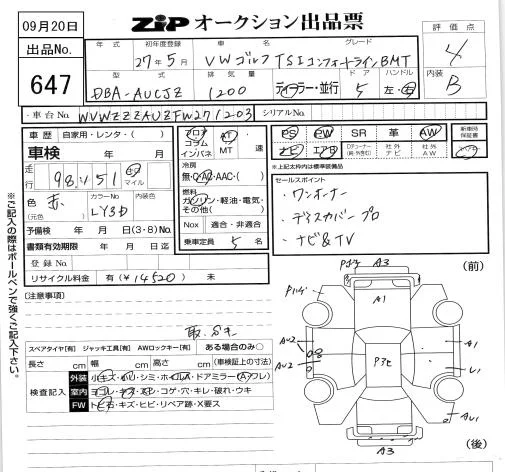 09月20日
ZiP オークション出品票
出品No.
647
年式
初年度登録
27年5月
車名
グレード
VWゴルフTSIコンフォートラインBMT
評価点
4
型式
DBA-AUCJZ
排気量
1200
ディーラー・並行
ドア
5
ハンドル
左・右
内装
B
車台No.
WVWZZZAUZFW271203
シリアルNo.
車歴 自家用・レンタ・( )
車検 年 月
走行 98,451 キロ マイル
色 赤 (元色) カラーNo LY3D
予備検 年 月 日(3・8)No.
書類有効期限 年 月 日迄
登録No.
リサイクル料金 有(¥14520) 未
フロア コラム インパネ
AT MT 速
冷房
無・C・AC・AAC・( )
燃料
ガソリン・軽油・電気・その他( )
Nox 適合・非適合
乗車定員 5名
PS PW SR 革 AW
ナビ エアB Dチューナー(純・外含む) 社外ナビ 社外AW
新車時保証書
※上記太枠内は標準装備品
セールスポイント
・ワンオーナー
・ディスカバープロ
・ナビ&TV
※ご記入の際はボールペンで強くご記入下さい。
[注意事項]
取.
スペアタイヤ[有] ジャッキ工具[有] AWロックキー[有] ある場合のみ○
長さ cm 幅 cm 高さ cm (車検証上の寸法)
検査記入
外装 小キズ・小凹・シミ・ホイルA・ドアミラー(A)ワレ)
室内 ヨゴレ・キズ・スレ・コゲ・穴・キレ・破れ・ウキ
FW トビ石・キズ・ヒビ・リペア跡・X要ス
(前)
A3
A1
AU2
AU2
A1
AU1
A3
(後)